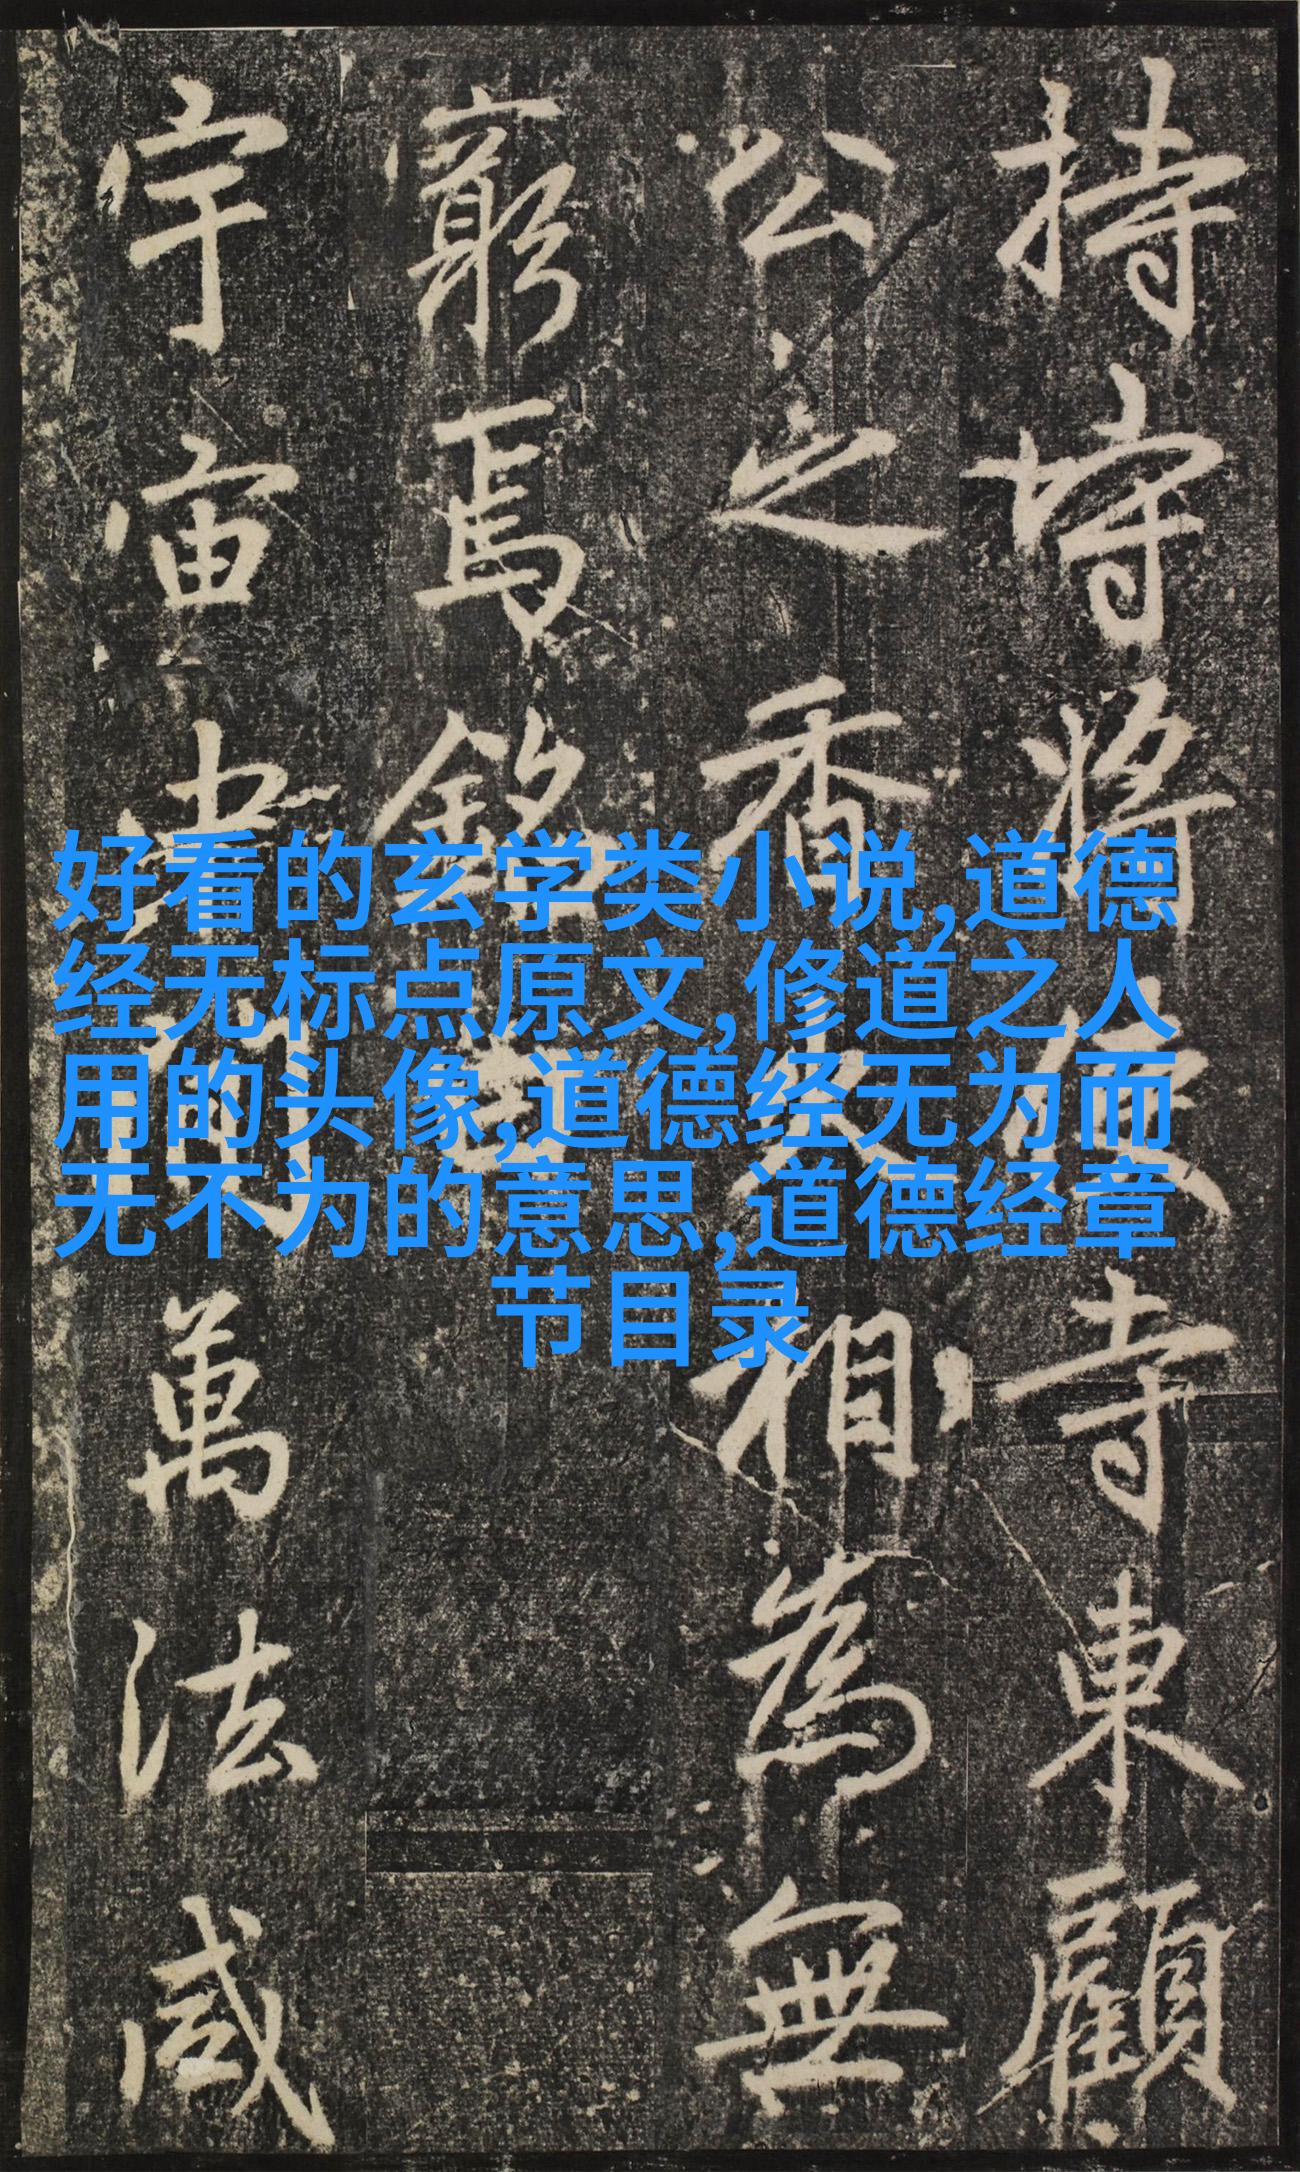 好看的玄学类小说,道德
经无标点原文,修道之人
用的头像,道德经无为而
无不为的意思,道德经章
节目录
持守将复寺東顧
公之香火相爲無
窮焉銘曰
宇宙萬法咸